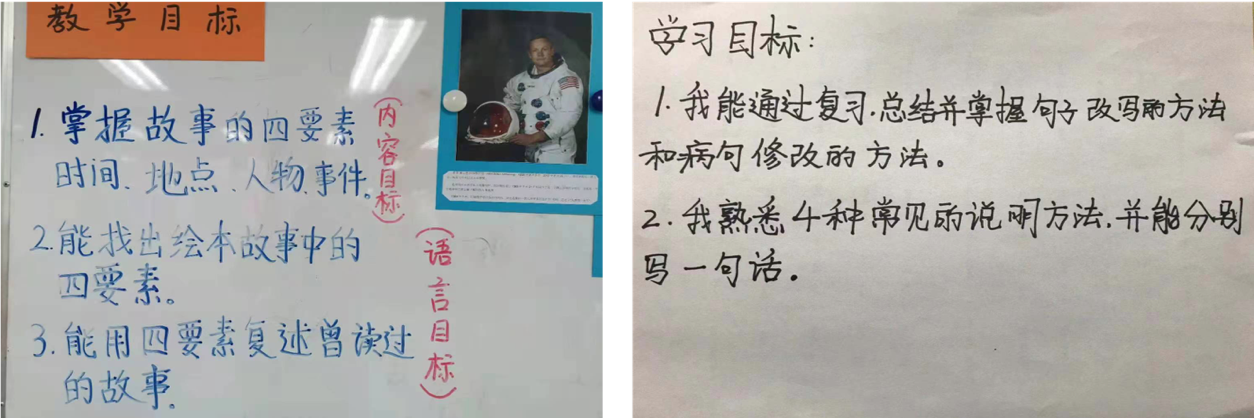 教学目标
1.掌握故事的四要素
时间、地点、人物、事件。
(内容目标)
2.能找出绘本故事中的
四要素。
3.能用四要素复述曾读过
的故事。
(语言目标)
学习目标:
1.我能通过复习.总结并掌握句子改写的方法
和病句修改的方法。
2.我熟悉4种常见的说明方法.并能分别
写一句话。